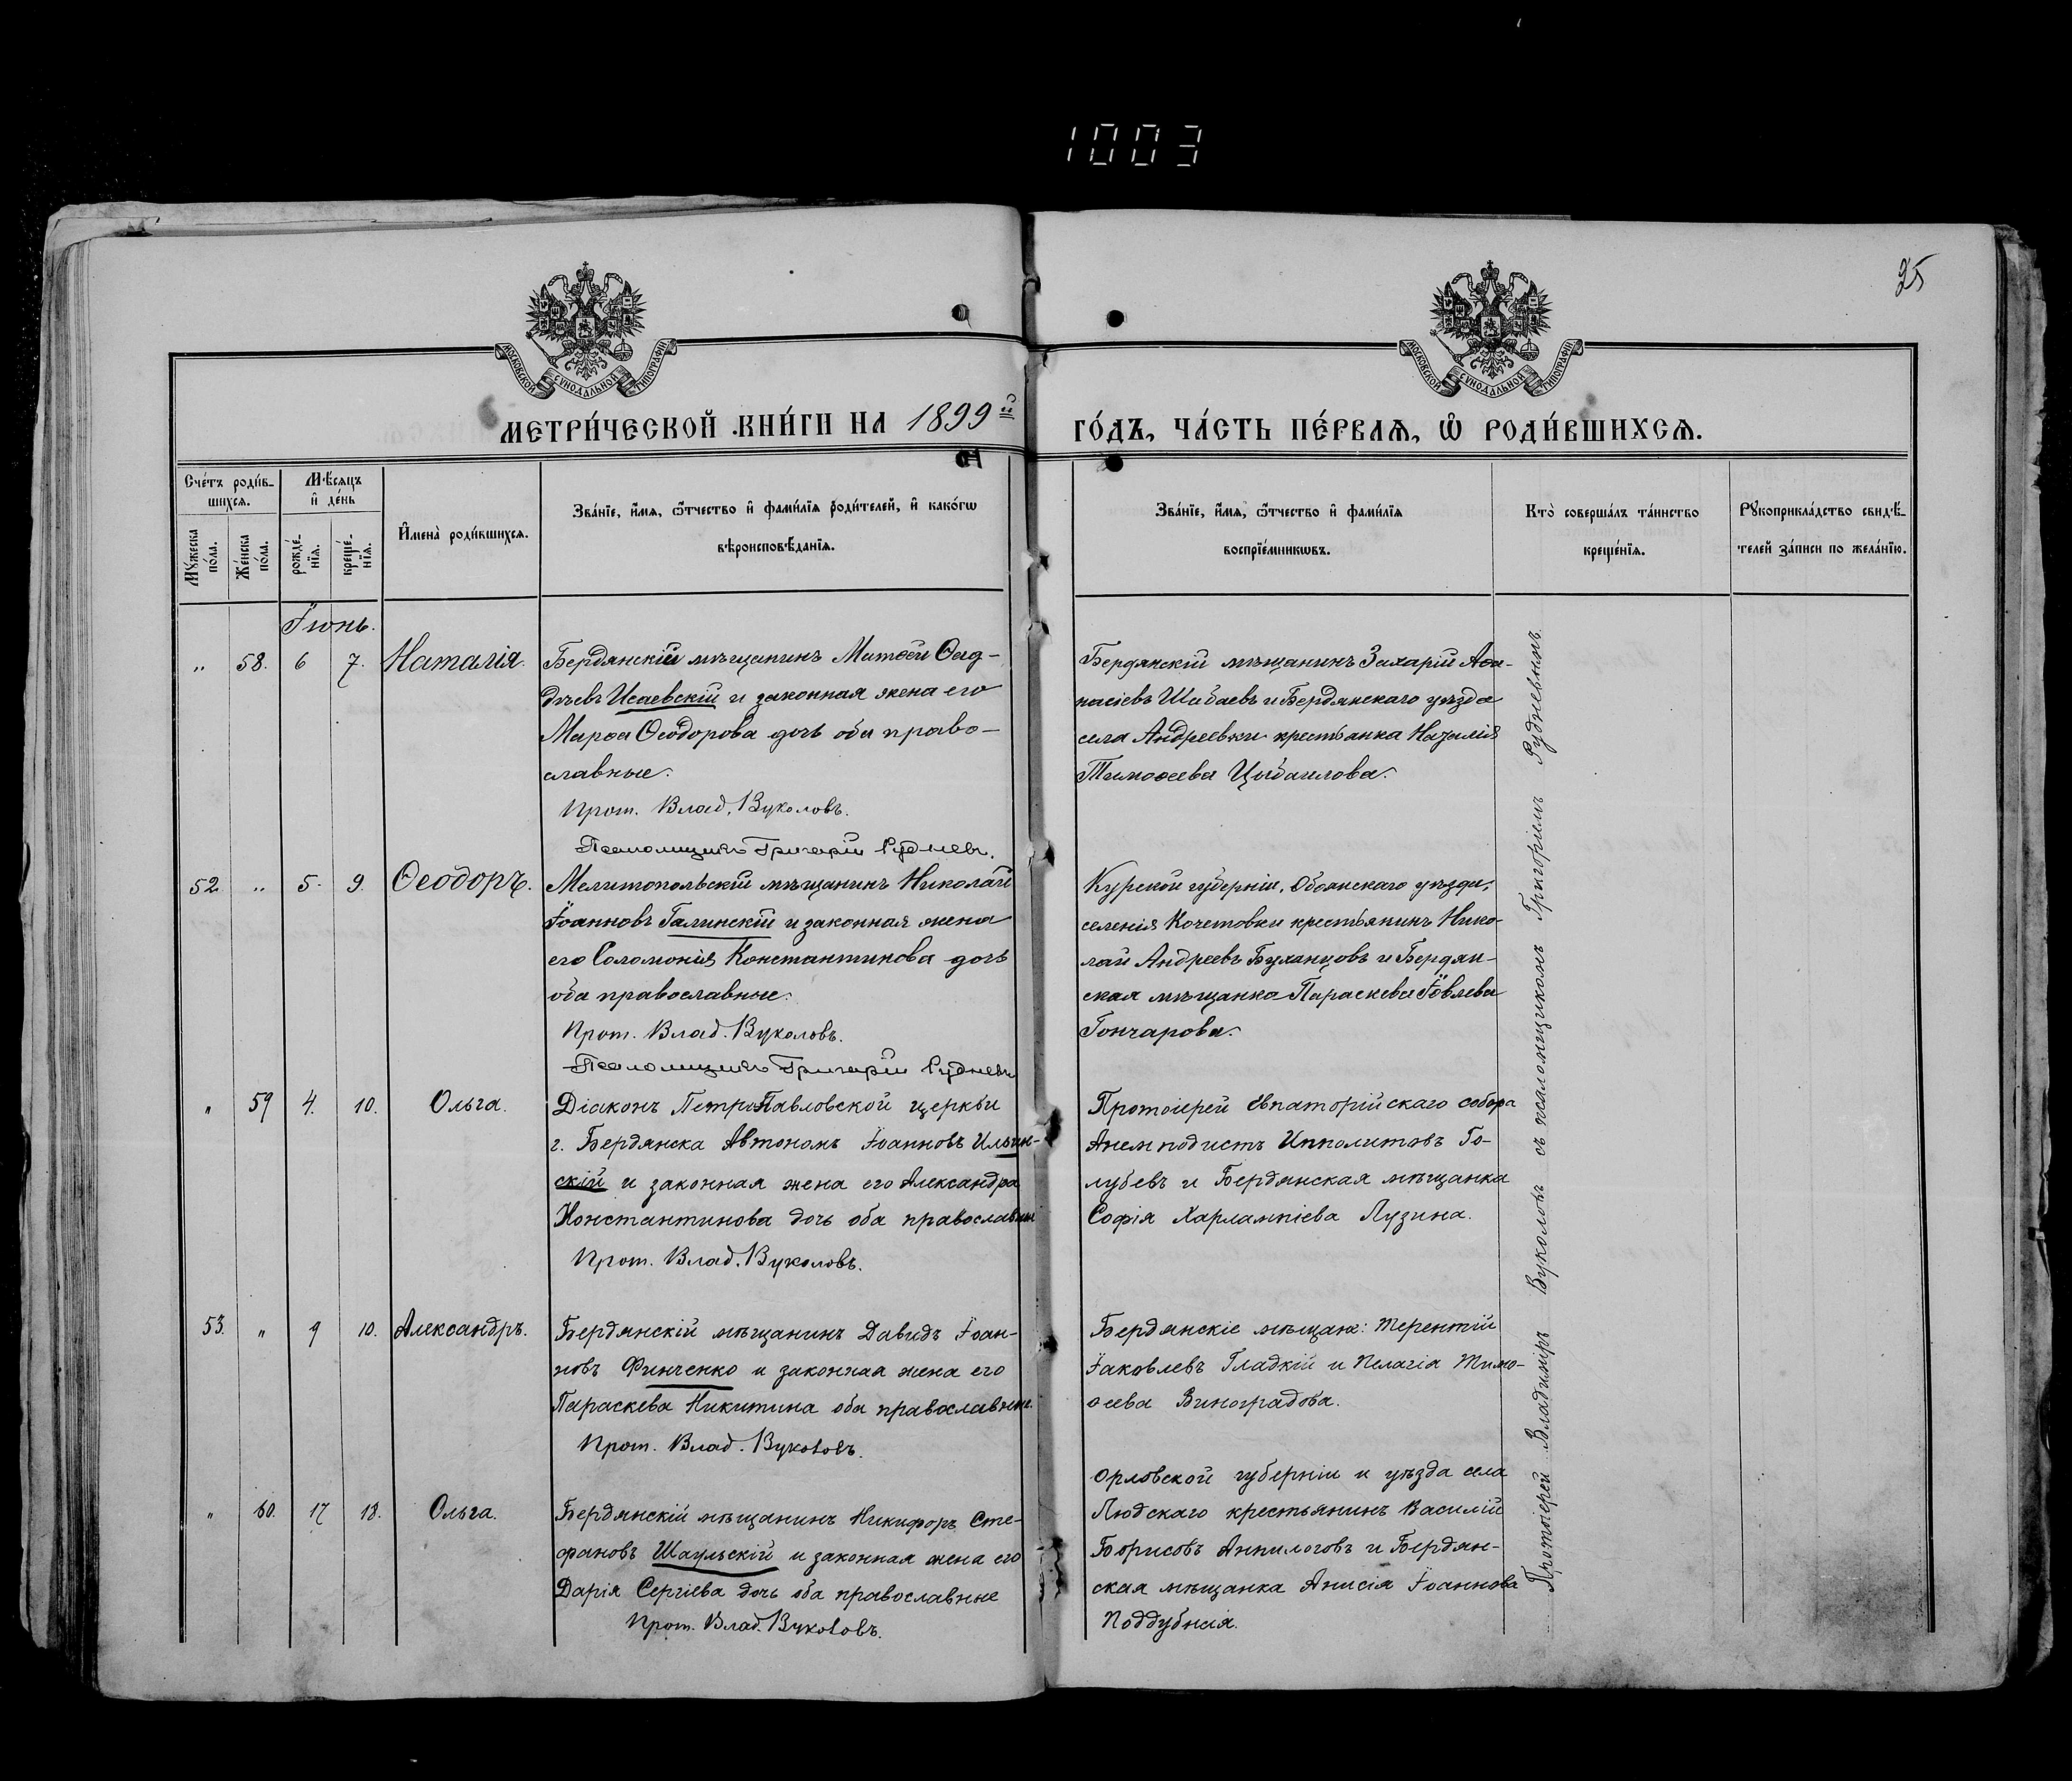 1003
25
МОСКОВСКОЙ СѴНОДАЛЬНОЙ ТИПОГРАФІИ
МОСКОВСКОЙ СѴНОДАЛЬНОЙ ТИПОГРАФІИ
МЕТРИ́ЧЕСКОЙ КНИ́ГИ НА 1899й ГО́ДЪ, ЧА́СТЬ ПЕ́РВАѦ, Ѡ҆ РОДИ́ВШИХСѦ.
Сче́тъ роди́в-
шихсѧ.
Мѣ́сѧцъ
и҆ де́нь
Мꙋ́жеска
по́ла.
Же́нска
по́ла.
рожде́-
нїѧ.
креще́-
нїѧ.
И҆мена̀ роди́вшихсѧ.
Зва́нїе, и҆́мѧ, ѻ҆́тчество и҆ фами́лїѧ роди́телей, и҆ како́гѡ
вѣроисповѣ́данїѧ.
Зва́нїе, и҆́мѧ, ѻ҆́тчество и҆ фами́лїѧ
воспрїе́мникѡвъ.
Кто̀ соверша́лъ та́инство
креще́нїѧ.
Рꙋкоприкла́дство свидѣ́-
телей за́писи по жела́нїю.
Іюнь.
„ 58. 6 7. Наталія.
Бердянскій мѣщанинъ Матѳей Ѳад-
дѣевъ Исаевскій и законная жена его
Марѳа Ѳеодорова дочь оба право-
славные.
Прот. Влад. Вуколовъ.
Псаломщикъ Григорій Рудневъ.
Бердянскій мѣщанинъ Захарій Аѳа-
насіевъ Шибаевъ и Бердянскаго уѣзда
села Андреевки крестьянка Наталія
Тимоѳеева
52. „ 5. 9. Ѳеодоръ.
Мелитопольскій мѣщанинъ Николай
Іоанновъ Галинскій и законная жена
его Соломонія Константинова дочь
оба православные.
Прот. Влад. Вуколовъ.
Псаломщикъ Григорій Рудневъ
Курской губерніи, Обоянскаго уѣзда,
селенія Кочетовки крестьянинъ Нико-
лай Андреевъ Буханцовъ и Бердян-
ская мѣщанка Параскева Іовлева
Гончарова.
„ 59 4. 10. Ольга.
Діаконъ ПетроПавловской церкви
г. Бердянска Автономъ Іоанновъ Ильин-
скій и законная жена его Александра
Константинова дочь оба православные
Прот. Влад. Вуколовъ.
Протоіерей Евпаторійскаго собора
Анемподистъ Ипполитовъ Го-
лубевъ и Бердянская мѣщанка
Софія Харлампіева Лузина.
53. „ 9 10. Александръ.
Бердянскій мѣщанинъ Давидъ Іоан-
новъ Финченко и законная жена его
Параскева Никитина оба православные.
Прот. Влад. Вуколовъ.
Бердянскіе мѣщане: Терентій
Іаковлевъ Гладкій и Пелагія Тимо-
ѳеева Виноградова.
„ 60. 17 18. Ольга.
Бердянскій мѣщанинъ Никифоръ Сте-
фановъ Шаульскій и законная жена его
Дарія Сергіева дочь оба православные
Прот. Влад. Вуколовъ.
Орловской губерніи и уѣзда села
Людскаго крестьянинъ Василій
Борисовъ Анпилоговъ и Бердян-
ская мѣщанка Анисія Іоаннова
Поддубная.
Протоіерей Владиміръ Вуколовъ съ псаломщикомъ Григоріемъ Рудневымъ